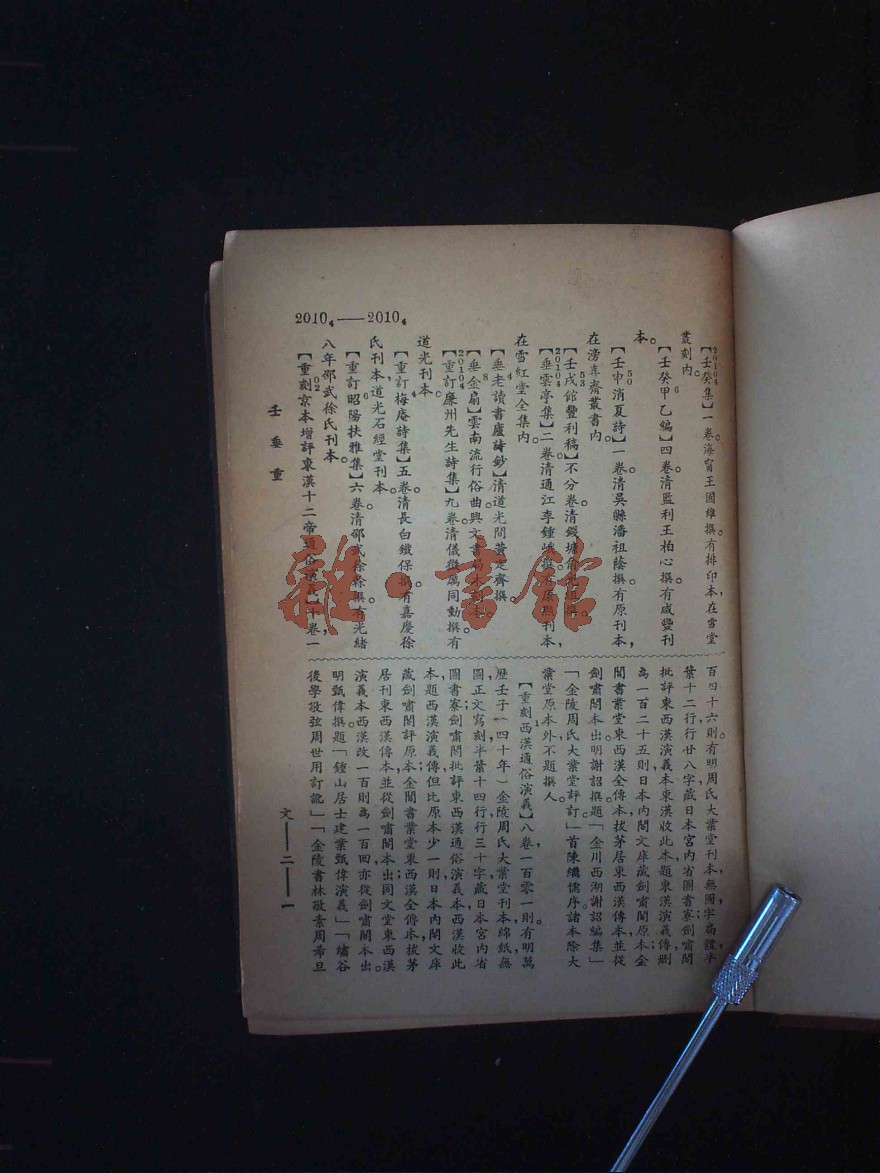 2010₄——2010₄
20104
【壬癸集】一卷。海甯王國維撰。有排印本，在雪堂
叢刻內。
6
【壬癸甲乙編】四卷。清監利王柏心撰。有咸豐刊
本。
50
【壬申消夏詩】一卷。清吳縣潘祖蔭撰。有原刊本，
在滂喜齋叢書內。
53
【壬戌館豐利稿】不分卷。清錢塘
20104
【垂雲亭集】二卷。清通江李鍾峨撰。有原刊本，
在雪紅堂全集內。
4
【垂老讀書廬詩鈔】清道光間董定齊撰。
8
【垂金扇】雲南流行俗曲。興文書局木刻本。
20104
【重訂廉州先生詩集】九卷。清儀徵厲同勳撰。有
道光刊本。
4
【重訂梅庵詩集】五卷。清長白鐵保撰。有嘉慶徐
氏刊本，道光石經堂刊本。
6
【重訂昭陽扶雅集】六卷。清邵武徐榦撰。有光緒
八年邵武徐氏刊本。
02
【重刻京本增評東漢十二帝通俗演義】十卷一
百四十六則。有明周氏大業堂刊本，無圖，字扁體，半
葉十二行，行廿八字，藏日本宮內省圖書寮；劍嘯閣
批評東西漢演義本，東漢收此本，題東漢演義傳，刪
爲一百二十五則，日本內閣文庫藏劍嘯閣原本；金
閶書業堂東西漢全傳本，拔茅居東西漢傳本，並從
劍嘯閣本出。明謝詔撰。題「金川西湖謝詔編集」
「金陵周氏大業堂評訂」。首陳繼儒序。諸本除大
業堂原本外，不題撰人。
1
【重刻西漢通俗演義】八卷一百零一則。有明萬
歷壬子（四十年）金陵周氏大業堂刊本，綿紙，無
圖，正文寫刻，半葉十四行，行三十字，藏日本宮內省
圖書寮；劍嘯閣批評東西漢通俗演義本，西漢收此
本，題西漢演義傳，但比原本少一則，日本內閣文庫
藏劍嘯閣評原本；金閶書業堂東西漢全傳本，拔茅
居刊東西漢傳本，並從劍嘯閣本出；同文堂東西漢
演義本，西漢改一百則爲一百回，亦從劍嘯閣本出。
明甄偉撰。題「鍾山居士建業甄偉演義」「繡谷
後學敬弦周世用訂訛」「金陵書林敬素周希旦
壬 垂 重
文——二——一
雜·書館